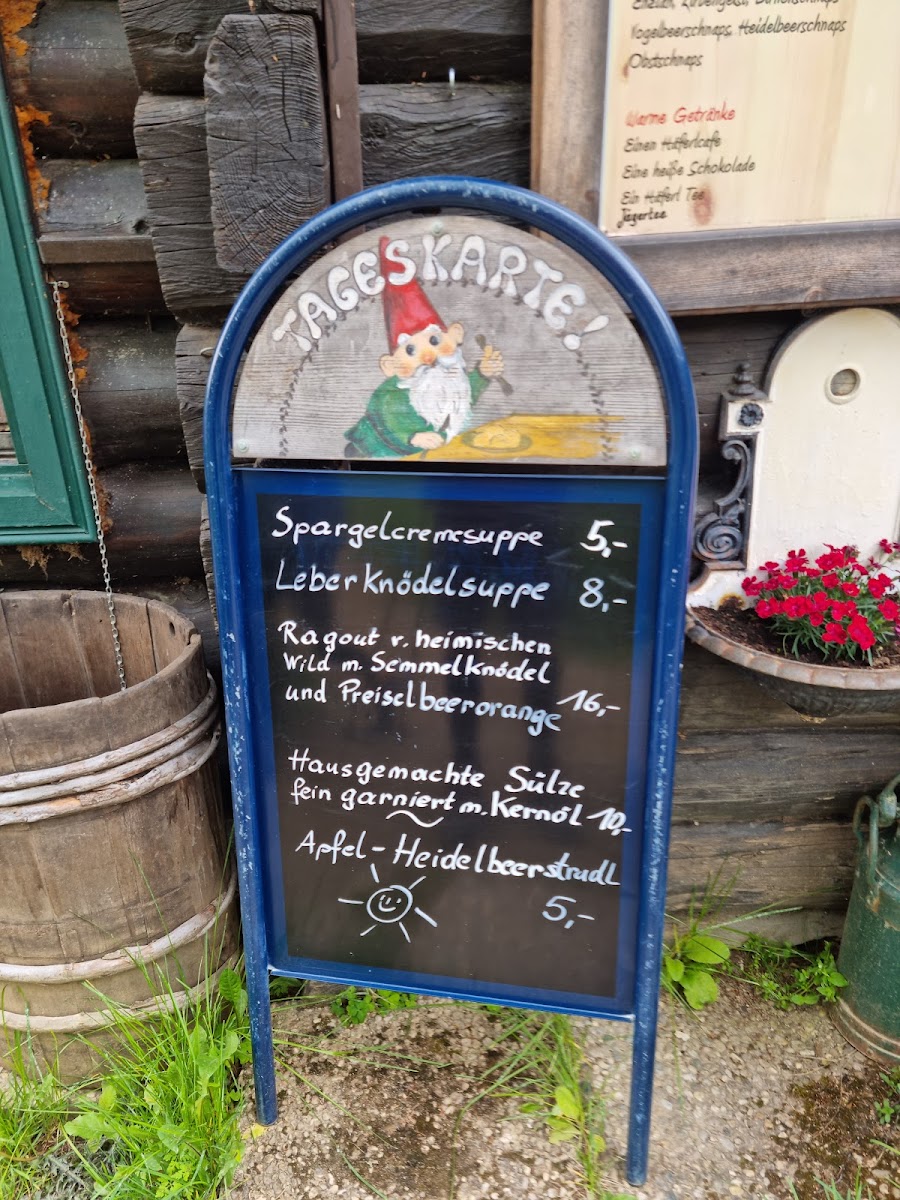 Enzian, Zirbengeist, Birnenschnaps
Vogelbeerschnaps, Heidelbeerschnaps
Obstschnaps
Warme Getränke
Einen Häferlcafe
Eine heiße Schokolade
Ein Häferl Tee
Jägertee
TAGESKARTE!
Spargelcremesuppe 5,-
Leberknödelsuppe 8,-
Ragout v. heimischen
Wild m. Semmelknödel
und Preiselbeerorange 16,-
Hausgemachte Sülze
fein garniert m. Kernöl 10,-
Apfel-Heidelbeerstrudl
5,-